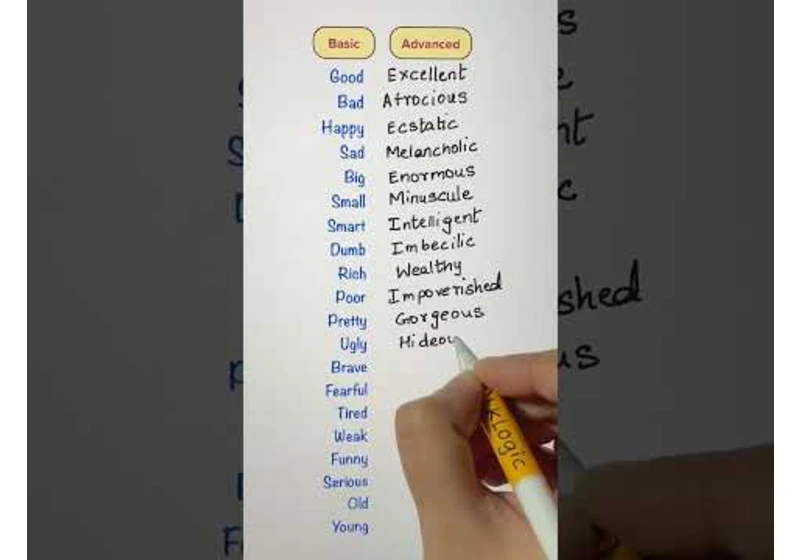 Basic Advanced
Good Excellent
Bad Atrocious
Happy Ecstatic
Sad Melancholic
Big Enormous
Small Minuscule
Smart Intelligent
Dumb Imbecilic
Rich Wealthy
Poor Impoverished
Pretty Gorgeous
Ugly Hideou
Brave
Fearful
Tired
Weak
Funny
Serious
Old
Young